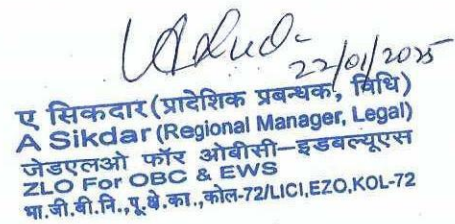 22/01/2025
ए सिकदार (प्रादेशिक प्रबन्धक, विधि)
A Sikdar (Regional Manager, Legal)
जेडएलओ फॉर ओबीसी–इडबल्यूएस
ZLO For OBC & EWS
भा.जी.बी.नि.,पू.क्षे.का.,कोल-72/LICI,EZO,KOL-72